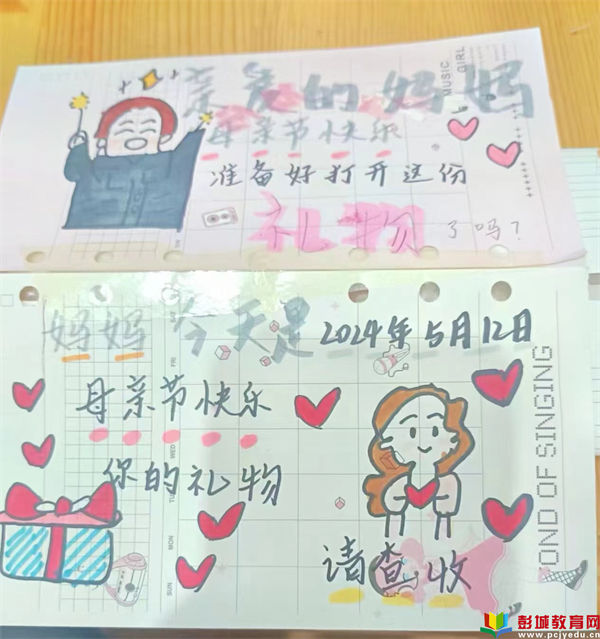 亲爱的妈妈
母亲节快乐
准备好打开这份
礼物了吗?
MUSIC
GIRL
妈妈今天是2024年5月12日
母亲节快乐
你的礼物
请查收
FRI
WED
TUE
MON
SUN
OND OF SINGING
彭城教育网
www.pcjyedu.cn